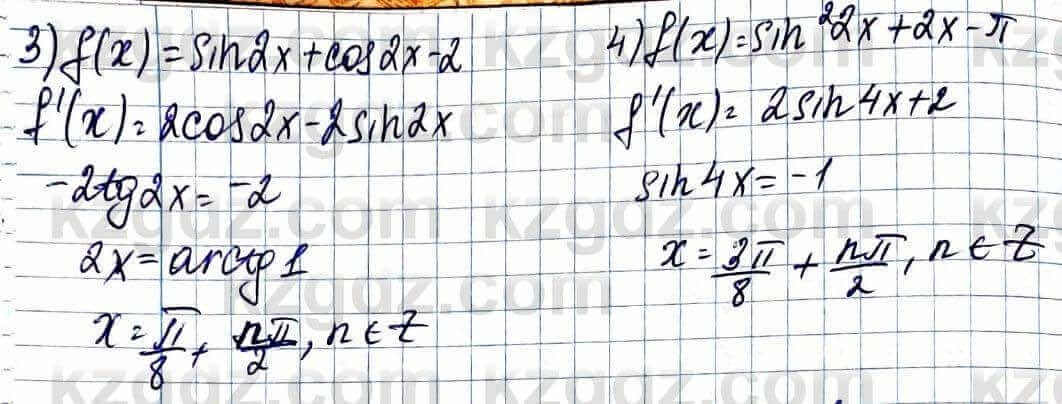 3) f(x) = sin2x + cos2x - 2
f'(x) = 2cos2x - 2sin2x
-2tg2x = -2
2x = arctg1
x = π/8 + nπ/2, n ∈ Z
4) f(x) = sin²2x + 2x - π
f'(x) = 2sin4x + 2
sin4x = -1
x = 3π/8 + nπ/2, n ∈ Z
kzgdz.com